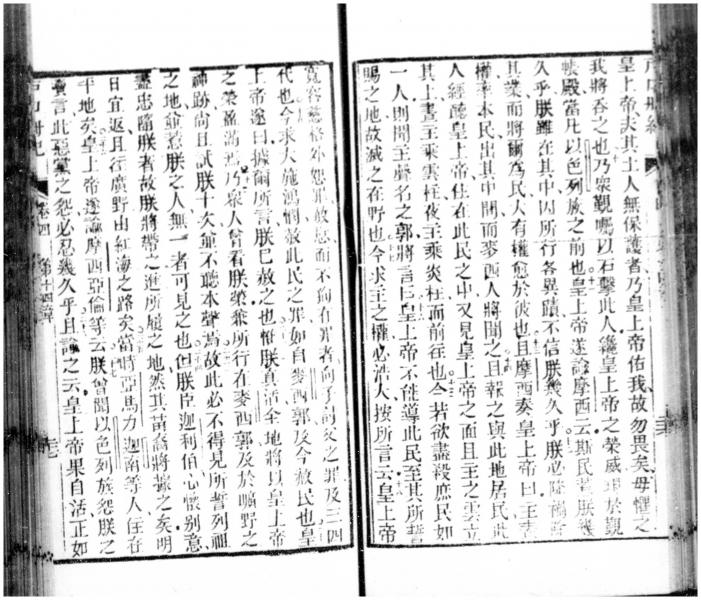 皇上帝夫其土人無保護者乃皇上帝佑我故勿畏矣毋懼之
我將吞之也乃眾覲鳴以石擊此人纔皇上帝之榮威現於覲
帳殿當凡以色列族之前也皇上帝遂諭摩西云斯民惹朕幾
久乎朕雖在其中因所行各異蹟不信朕幾久乎朕必降禍
其業而將爾為民大有權愈於彼也且摩西奏皇上帝曰主素
權率本民出其中間而麥西人將聞之且報之與此地居民此
人經聽皇上帝住在此民之中又見皇上帝之面且主之雲立
其上晝主乘雲柱夜主乘炎柱而前往也今若欲盡殺庶民如
一人則聞主聲名之郭將言曰皇上帝不能導此民至其所誓
賜之地故滅之在野也今求主之權必浩大按所言云皇上帝
寬容慈格外恕罪赦惡而不徇有罪者向子討父之罪及三四
代也今求大施鴻恫赦此民之罪如自麥西郭及今赦民也皇
上帝遂曰據爾所言朕已赦之也惟朕真活全地將以皇上帝
之榮盈滿焉乃眾人曾看朕榮兼所行在麥西郭及於曠野之
神跡尚且試朕十次並不聽本聲焉故此必不得見所誓列祖
之地爺惹朕之人無一者可見之也但朕臣迦利伯心懷别意
盡忠隨朕者故朕將帶之進所履之地然其苗裔將據之矣明
日宜返且行廣野由紅海之路矣當時亞馬力迦南等人住在
平地矣皇上帝遂諭摩西亞倫等云朕曾聞以色列族怨朕之
瀆言此惡黨之怨必忍幾久乎且諭之云皇上帝果自活正如
戶口冊紀 卷四 第十四章